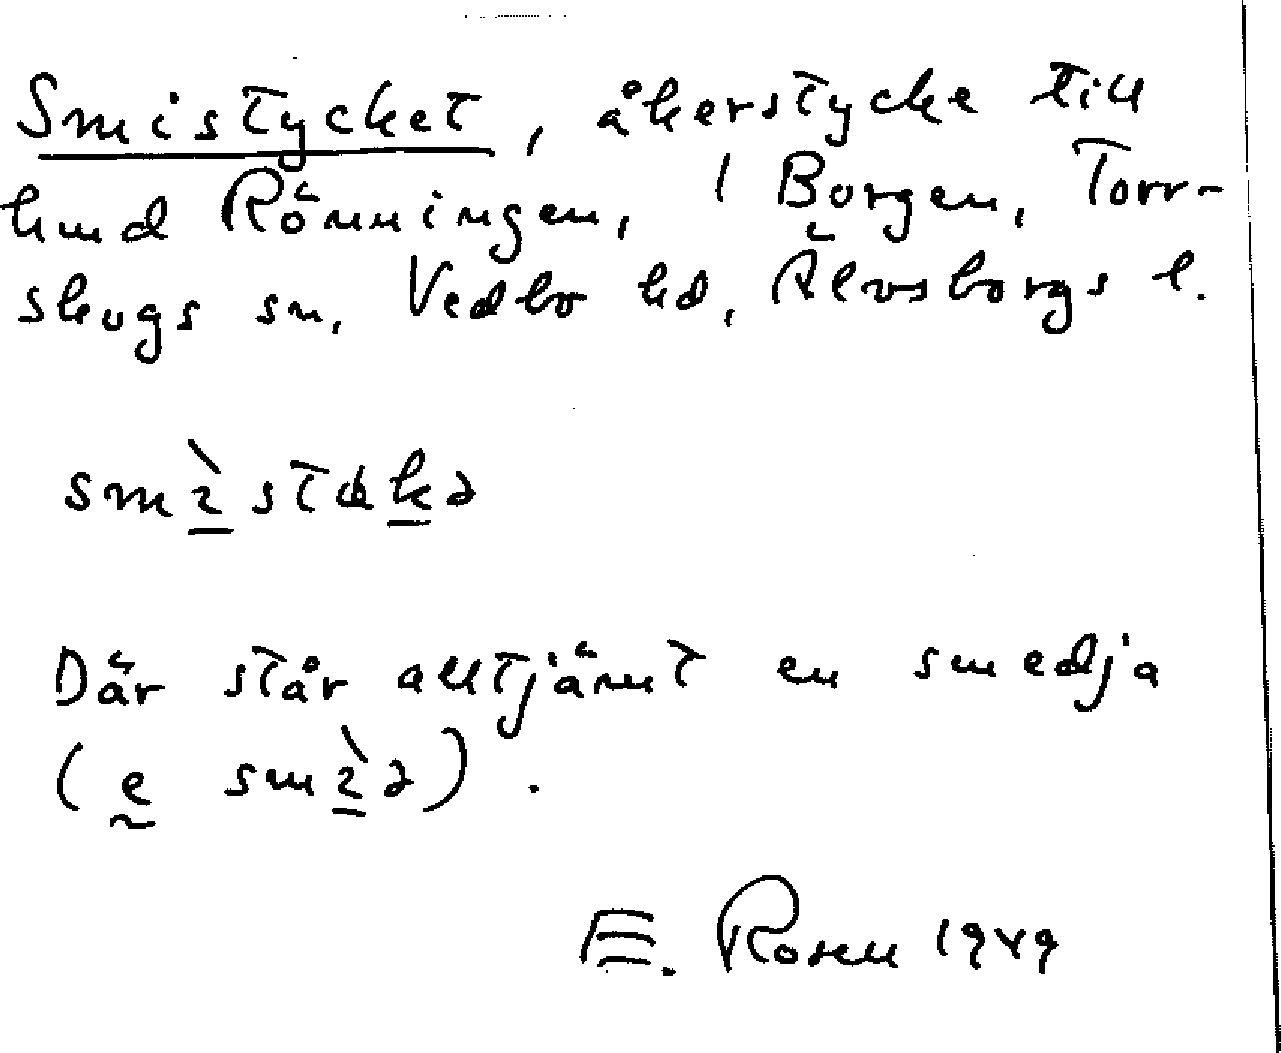 Smistycket, åkerstycke till
hmd Rönningen, 1 Borgen, Torr-
skogs sn, Vedbo hd, Älvsborgs l.
smìstɑkə
Där står alltjämt en smedja
(e smìə).
E. Rosen 1949